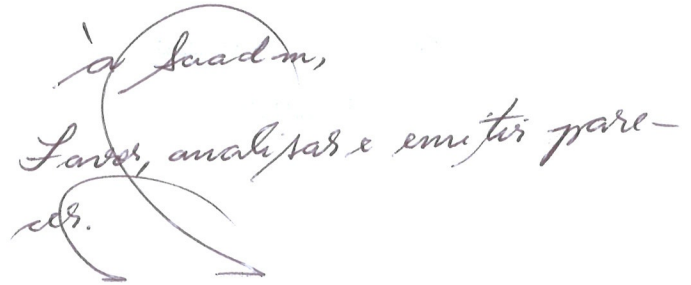 à Saadm,
Favor, analisar e emitir pare-
cer.